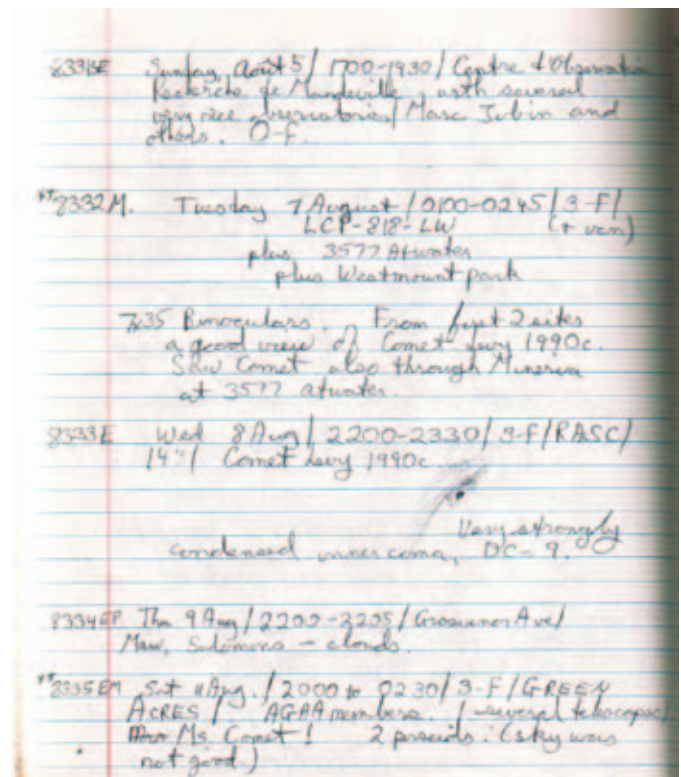 8331SE Sunday, Août 5/ 1700-1930/ Centre d'Observation
Recherche de Mandeville, with several
very nice observatories/ Marc Jobin and
others. O-F.
8332M. Tuesday 7 August/ 0100-0245/ 3-F/
LCP-818-LW (+ van)
plus 3577 Atwater
plus Westmount park
7x35 Binoculars. From first 2 sites
a good view of Comet Levy 1990c.
Saw Comet also through Minerva
at 3577 Atwater.
8333E Wed 8 Aug/ 2200-2330/ 3-F/RASC/
14"/ Comet Levy 1990c
Very strongly
condensed inner coma, DC-9.
8334EP Thu 9 Aug/ 2200-2205/ Grosvenor Ave/
Maw, Solomons - clouds.
8335EM Sat 11 Aug./ 2000 to 0230/ 3-F/ GREEN
ACRES/ AGAA members. / several telescopes/
Ms. Comet! 2 perseids. (sky was
not good.)